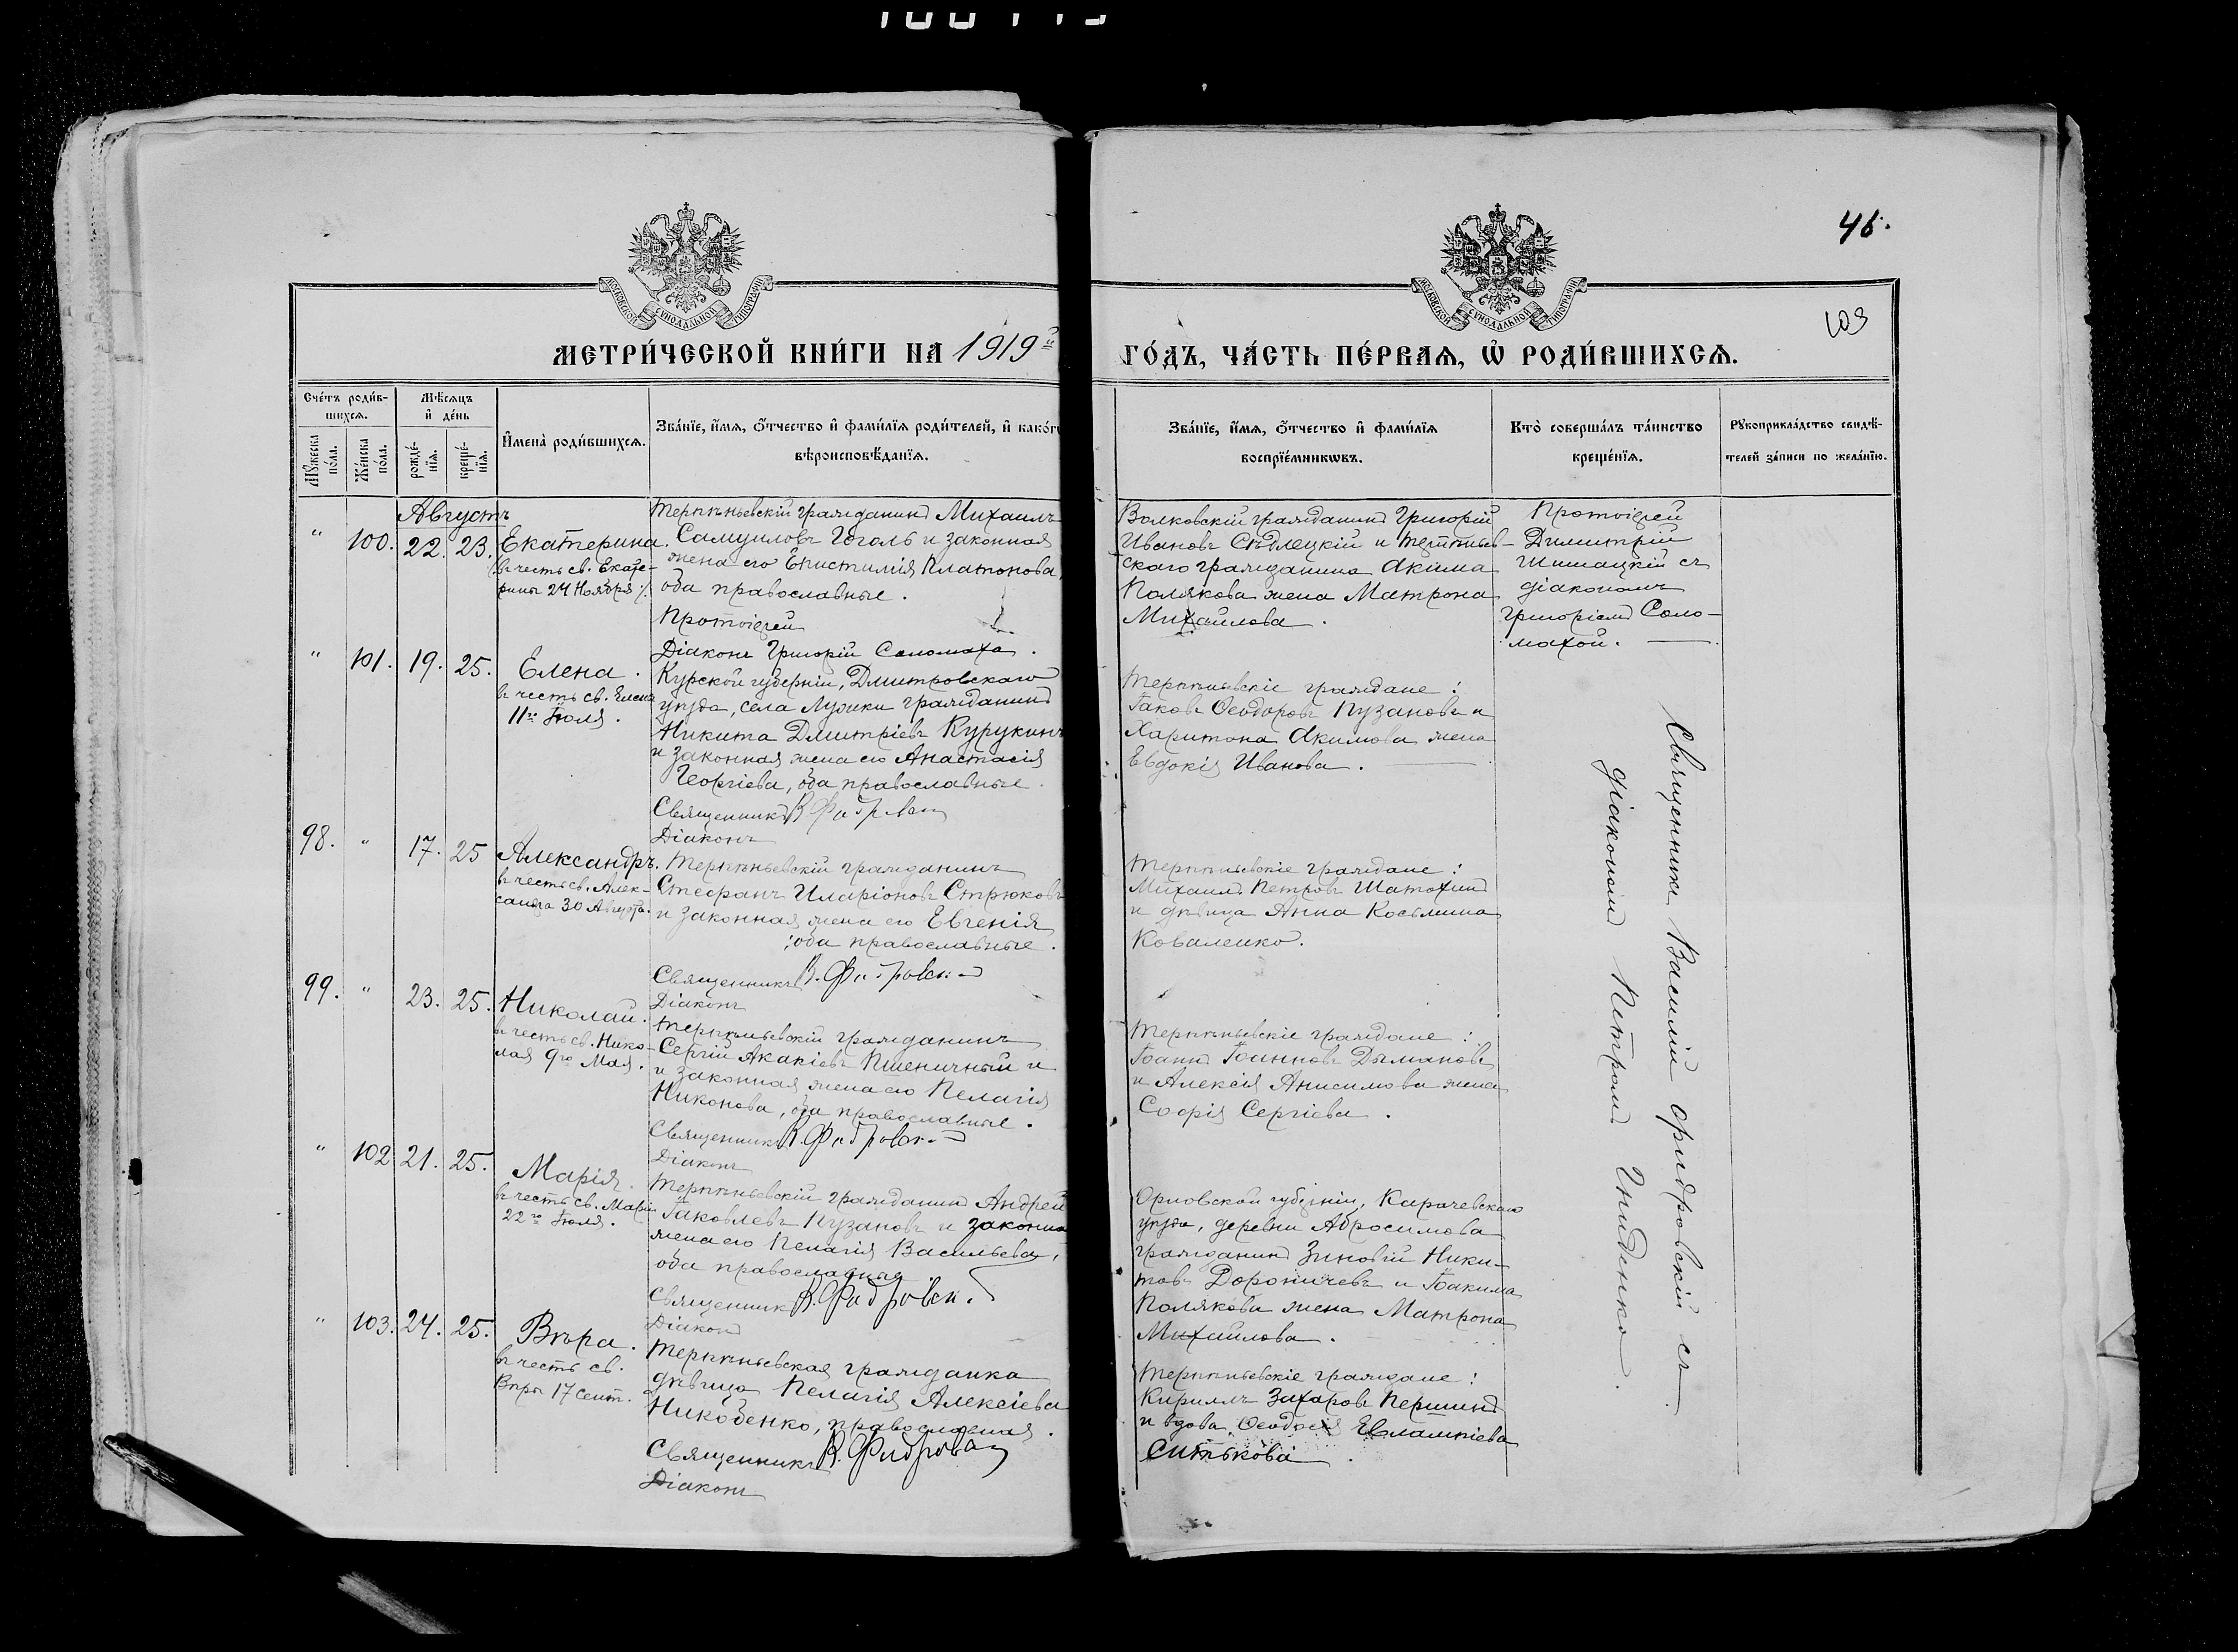 46.
103
МОСКОВСКОЙ СѴНОДАЛЬНОЙ ТИПОГРАФІИ
МОСКОВСКОЙ СѴНОДАЛЬНОЙ ТИПОГРАФІИ
МЕТРИ́ЧЕСКОЙ КНИ́ГИ НА 1919й
ГО́ДЪ, ЧА́СТЬ ПЕ́РВАѦ, Ѡ РОДИ́ВШИХСѦ.
Сче́тъ роди́в-
шихсѧ.
Мꙋ́жеска по́ла.
Же́нска по́ла.
Мѣ́сѧцъ
и де́нь
рожде́-
нїѧ.
креще́-
нїѧ.
Имена̀ роди́вшихсѧ.
Зва́нїе, и́мѧ, ѻ́тчество и фами́лїѧ роди́телей, и како́гѡ
вѣроисповѣ́данїѧ.
Зва́нїе, и́мѧ, ѻ́тчество и фами́лїѧ
воспрїе́мникѡвъ.
Кто̀ соверша́лъ та́инство
креще́нїѧ.
Рꙋкоприкла́дство свидѣ́-
телей за́писи по жела́нїю.
Августъ
" 100. 22. 23. Екатерина.
въ честь св. Екате-
рины 24 Ноября
Терпѣньевскій гражданинъ Михаилъ
Самуиловъ Гоголь и законная
жена его Епистимія Платонова,
оба православные.
Протоіерей
Діаконъ Григорій Соломаха.
Волковскій гражданинъ Григорій
Ивановъ Сѣдлецкій и Терпѣньев-
скаго гражданина Акима
Полякова жена Матрона
Михайлова.
Протоіерей
Димитрій
Шишацкій съ
діакономъ
Григоріемъ Соло-
махой.
" 101. 19. 25. Елена.
въ честь св. Елены
11го Іюля.
Курской губерніи, Дмитровскаго
уѣзда, села гражданинъ
Никита Дмитріевъ Курукинъ
и законная жена его Анастасія
Георгіева, оба православные.
Священникъ В.
Діаконъ
Терпѣньевскіе граждане:
Іаковъ Ѳеодоровъ Пузановъ и
Харитона Акимова жена
Евдокія Иванова.
98. " 17. 25 Александръ.
въ честь св. Алек-
сандра 30 Августа.
Терпѣньевскій гражданинъ
Стефанъ Иларіоновъ Стрюковъ
и законная жена его Евгенія
оба православные.
Священникъ В.
Діаконъ
Терпѣньевскіе граждане:
Михаилъ Петровъ Шатохинъ
и дѣвица Анна Косьмина
Коваленко.
99. " 23. 25. Николай.
въ честь св. Нико-
лая 9го Мая.
Терпѣньевскій гражданинъ
Сергій Акакіевъ Пшеничный и
и законная жена его Пелагія
Никонова, оба православные.
Священникъ В.
Діаконъ
Терпѣньевскіе граждане:
Іоаннъ Іоанновъ Дымановъ
и Алексія Анисимова жена
Софія Сергіева.
" 102 21. 25. Марія.
въ честь св. Маріи
22го Іюля.
Терпѣньевскій гражданинъ Андрей
Іаковлевъ Пузановъ и законна
жена его Пелагія Васильева,
оба православные
Священникъ В.
Діаконъ
Орловской губерніи, Карачевскаго
уѣзда, деревни Абросимова
гражданинъ Зиновій Ники-
товъ Дороничевъ и Іоакима
Полякова жена Матрона
Михайлова.
" 103. 24. 25. Вѣра.
въ честь св.
Вѣры 17 Сент.
Терпѣньевская гражданка
дѣвица Пелагія Алексіева
Никобенко, православная.
Священникъ В.
Діаконъ
Терпѣньевскіе граждане:
Кириллъ Захаровъ Першинъ
и вдова Ѳеодосія Евлампіева
Ситькова.
Священникъ Василій Фидровскій съ
діакономъ Петромъ Гниденко.